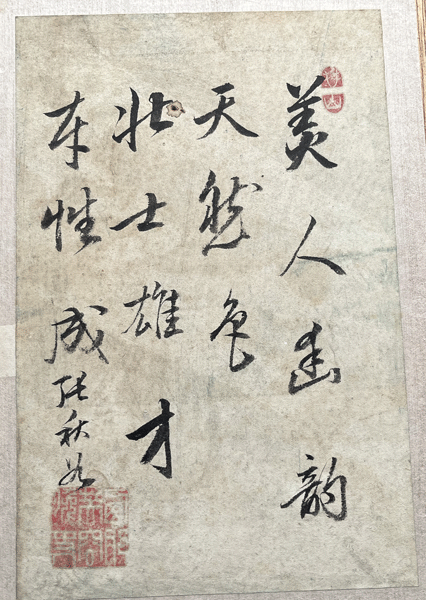 美人幽韵
天然色
壮士雄才
本性成
张秋谷